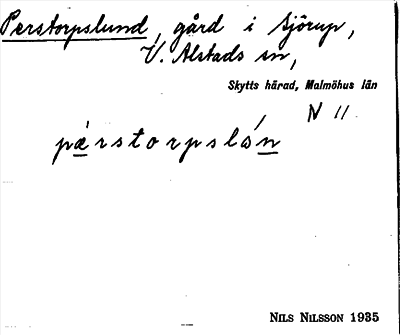 Perstorpslund, gård i Sjörup,
V. Alstads sn,
Skytts härad, Malmöhus län
N 11.
pærstorpslón
NILS NILSSON 1935